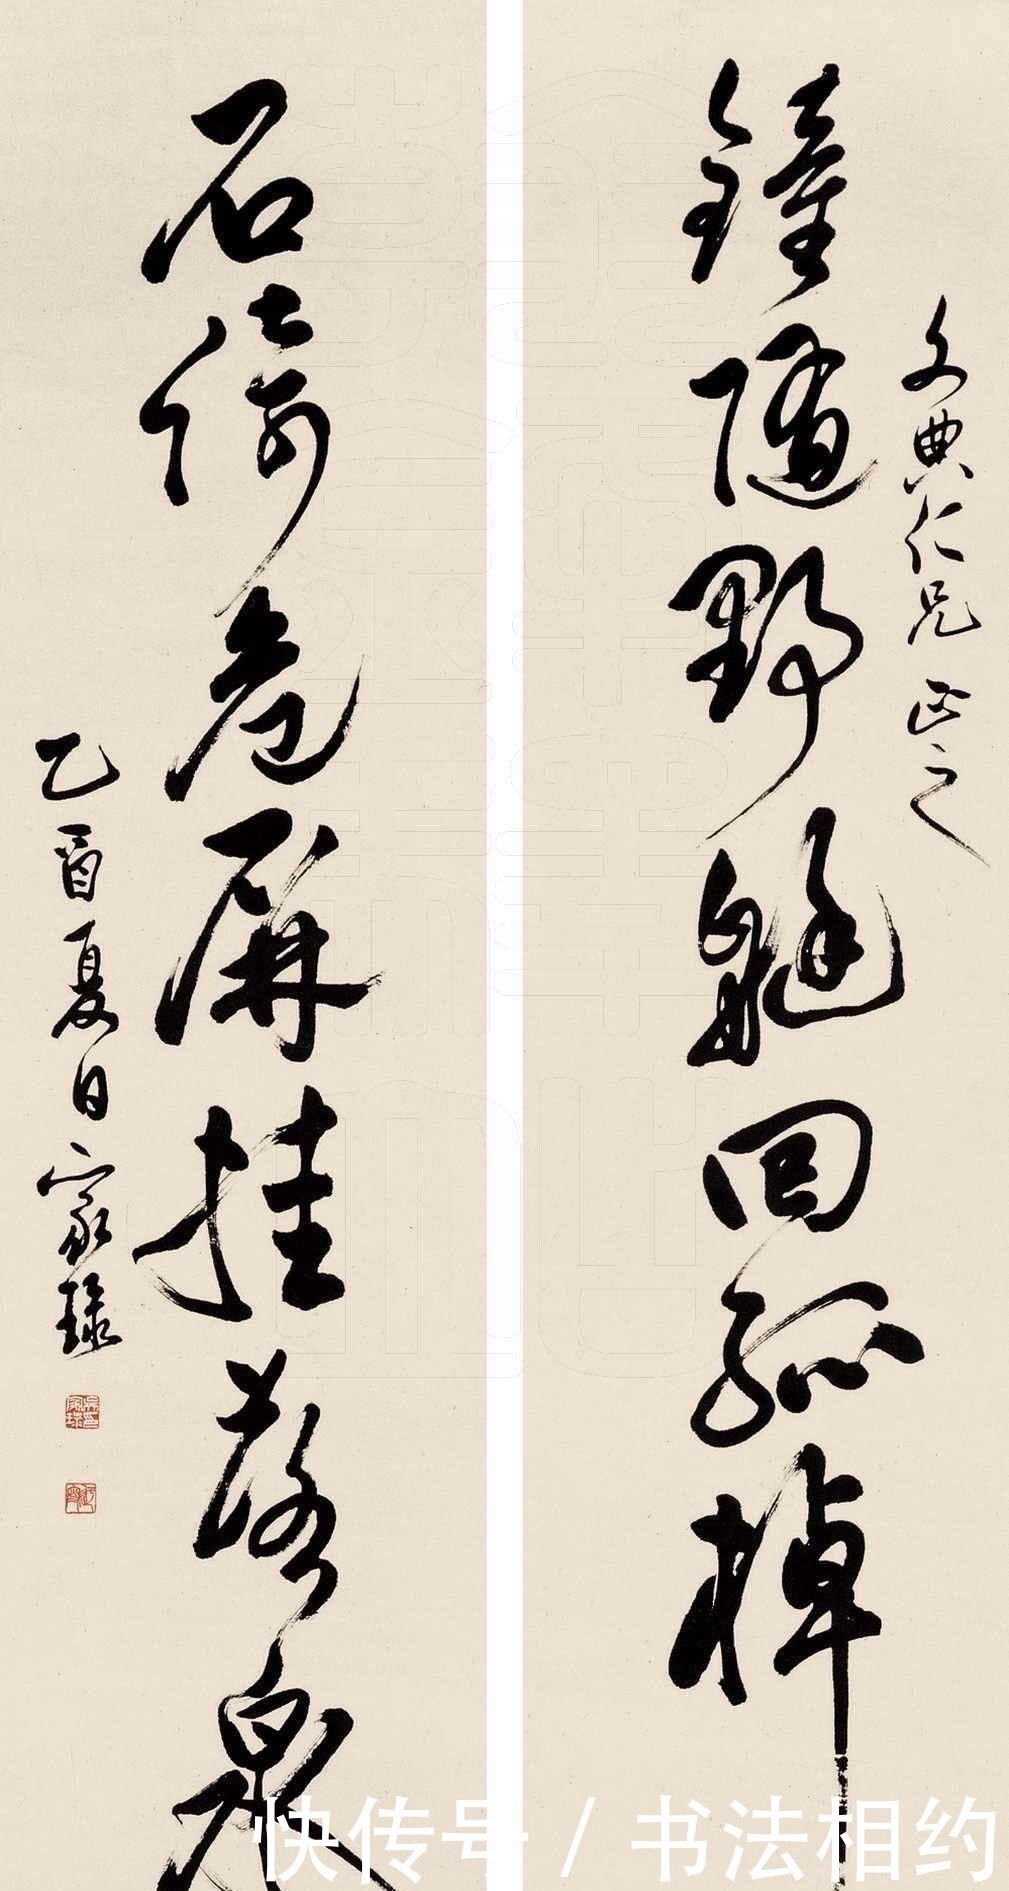 文典仁兄 正之
鐘随野艇回孤棹
石倚危屏挂落泉
乙酉夏日家琭
快传号 / 书法相约